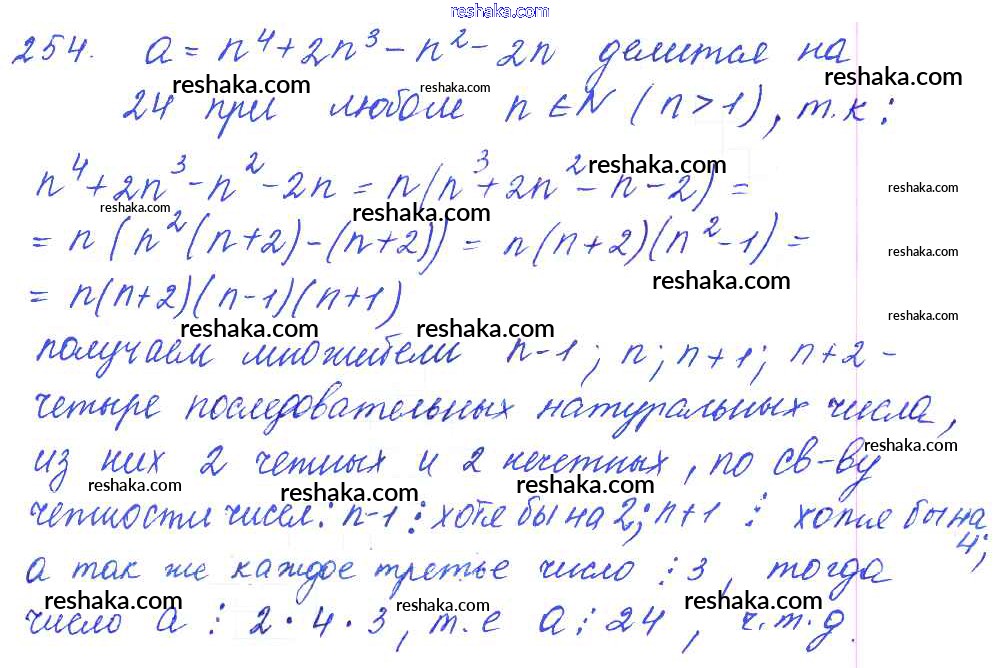 reshaka.com
254. a = n⁴ + 2n³ - n² - 2n делится на
reshaka.com reshaka.com reshaka.com
24 при любом n ∈ N (n > 1), т.к:
reshaka.com
n⁴ + 2n³ - n² - 2n = n(n³ + 2n² - n - 2) =
reshaka.com
reshaka.com reshaka.com
= n(n²(n+2) - (n+2)) = n(n+2)(n² - 1) =
reshaka.com
reshaka.com
= n(n+2)(n-1)(n+1)
reshaka.com
reshaka.com reshaka.com
получаем множители n-1; n; n+1; n+2 -
четыре последовательных натуральных числа,
reshaka.com
из них 2 четных и 2 нечетных, по св-ву
reshaka.com reshaka.com reshaka.com
четности чисел: n-1 ⋮ хотя бы на 2; n+1 ⋮ хотя бы на
4;
а так же каждое третье число ⋮ 3, тогда
reshaka.com reshaka.com reshaka.com
число a ⋮ 2 · 4 · 3, т.е a ⋮ 24, ч.т.д.